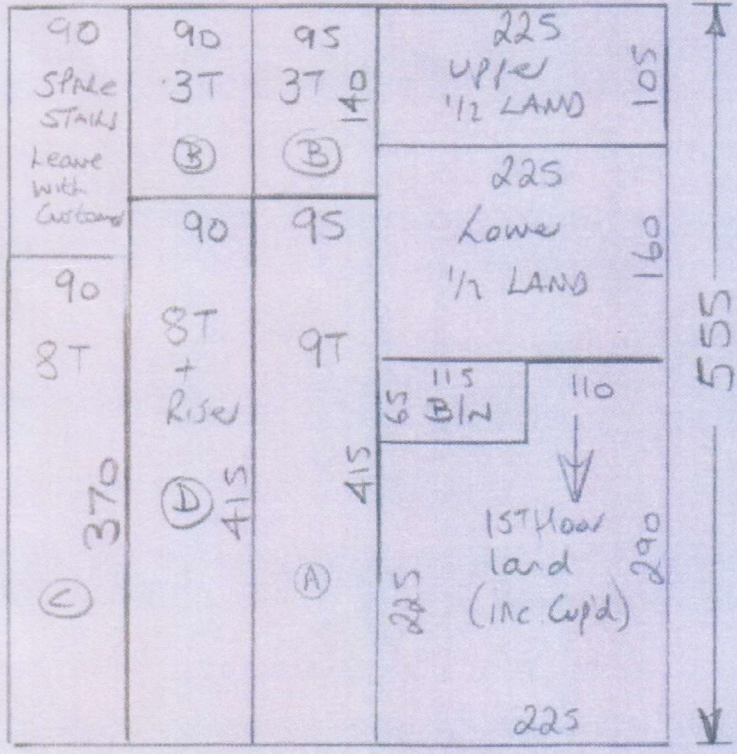 90
SPARE
STAIRS
Leave
with
Customer
90
3T
B
95
3T
140
B
225
upper
1/2 LAND
105
225
Lower
1/2 LAND
160
555
90
8T
370
C
90
8T
+
Riser
D
415
95
9T
415
A
115
65
B/N
110
1ST Floor
land
(inc. Cup'd)
290
225
225